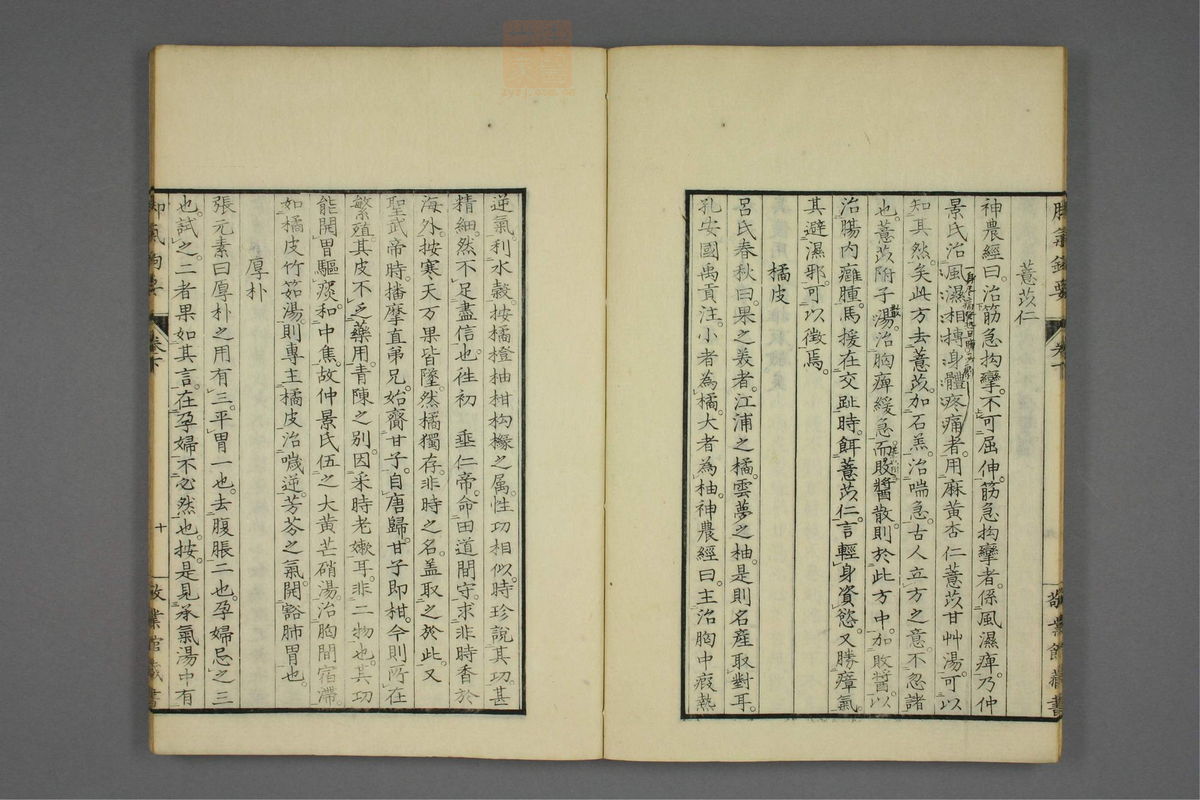 薏苡仁
神農經曰。治筋急拘攣。不可屈伸。筋急拘攣者。係風濕痺。乃仲
景氏治風濕相搏身體疼痛者。用麻黃杏仁薏苡甘艸湯。可以
知其然矣。此方去薏苡。加石羔。治喘急。古人立方之意。不忽諸
也。薏苡附子湯。治胸痺緩急。而敗醬散。則於此方中。加敗醬。以
治腸內癰腫。馬援在交趾時。餌薏苡仁。言輕身資慾。又勝瘴氣。
其避濕邪。可以徵焉。
橘皮
呂氏春秋曰。果之美者。江浦之橘。雲夢之柚。是則名產取對耳。
孔安國禹貢注。小者為橘。大者為柚。神農經曰。主治胸中瘕熱
逆氣。利水穀。按橘橙柚柑枸櫞之属。性功相似。時珍說其功。甚
精細。然不足盡信也。徃初 垂仁帝。命田道間守。求非時香於
海外。按寒天万果皆墜。然橘獨存。非時之名。盖取之於此。又
聖武帝時。播摩直弟兄。始齎甘子。自唐歸。甘子即柑。今則所在
繁殖。其皮不乏藥用。青陳之別。因采時老嫰耳。非二物也。其功
能開胃驅痰。和中焦。故仲景氏伍之大黃芒硝湯。治胸間宿滯。
如橘皮竹筎湯。則專主橘皮治噦逆。芳芬之氣。開豁肺胃也。
厚朴
張元素曰。厚朴之用有三。平胃一也。去腹脹二也。孕婦忌之三
也。試之。二者果如其言。在孕婦不必然也。按。是見承氣湯中有
卷下
十